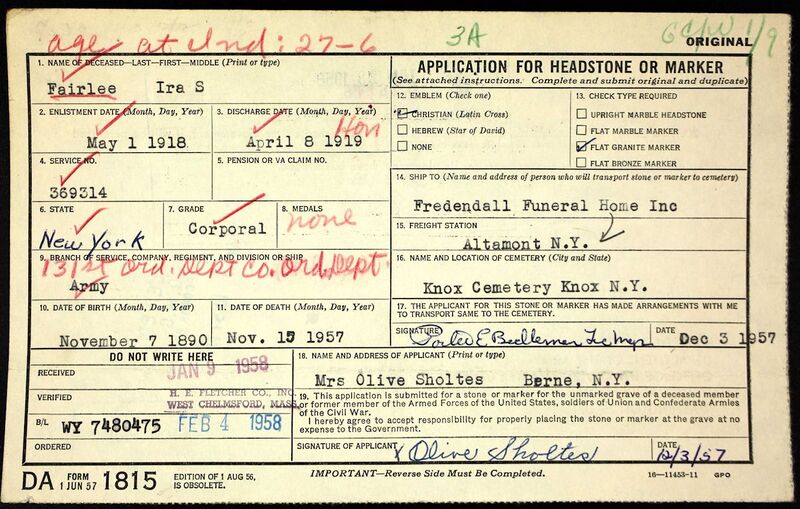 age at Ind: 27-6
3A
ORIGINAL
1. NAME OF DECEASED—LAST—FIRST—MIDDLE (Print or type)
Fairlee Ira S
2. ENLISTMENT DATE (Month, Day, Year)
May 1 1918
3. DISCHARGE DATE (Month, Day, Year)
Hon
April 8 1919
4. SERVICE NO.
369314
5. PENSION OR VA CLAIM NO.
6. STATE
New York
7. GRADE
Corporal
8. MEDALS
none
9. BRANCH OF SERVICE, COMPANY, REGIMENT, AND DIVISION OR SHIP
131st Ord. Dept Co. Ord. Dept.
Army
10. DATE OF BIRTH (Month, Day, Year)
November 7 1890
11. DATE OF DEATH (Month, Day, Year)
Nov. 15 1957
APPLICATION FOR HEADSTONE OR MARKER
(See attached instructions. Complete and submit original and duplicate)
12. EMBLEM (Check one)
CHRISTIAN (Latin Cross)
HEBREW (Star of David)
NONE
13. CHECK TYPE REQUIRED
UPRIGHT MARBLE HEADSTONE
FLAT MARBLE MARKER
FLAT GRANITE MARKER
FLAT BRONZE MARKER
14. SHIP TO (Name and address of person who will transport stone or marker to cemetery)
Fredendall Funeral Home Inc
15. FREIGHT STATION
Altamont N.Y.
16. NAME AND LOCATION OF CEMETERY (City and State)
Knox Cemetery Knox N.Y.
17. THE APPLICANT FOR THIS STONE OR MARKER HAS MADE ARRANGEMENTS WITH ME
TO TRANSPORT SAME TO THE CEMETERY.
SIGNATURE
DATE
Dec 3 1957
DO NOT WRITE HERE
RECEIVED
JAN 9 1958
VERIFIED
H. E. FLETCHER CO., INC.
WEST CHELMSFORD, MASS.
B/L
WY 7480475
FEB 4 1958
ORDERED
18. NAME AND ADDRESS OF APPLICANT (Print or type)
Mrs Olive Sholtes Berne, N.Y.
19. This application is submitted for a stone or marker for the unmarked grave of a deceased member
or former member of the Armed Forces of the United States, soldiers of Union and Confederate Armies
of the Civil War.
I hereby agree to accept responsibility for properly placing the stone or marker at the grave at no
expense to the Government.
SIGNATURE OF APPLICANT
x Olive Sholtes
DATE
12/3/57
DA FORM 1 JUN 57 1815
EDITION OF 1 AUG 56,
IS OBSOLETE.
IMPORTANT—Reverse Side Must Be Completed.
16—11453-11 GPO